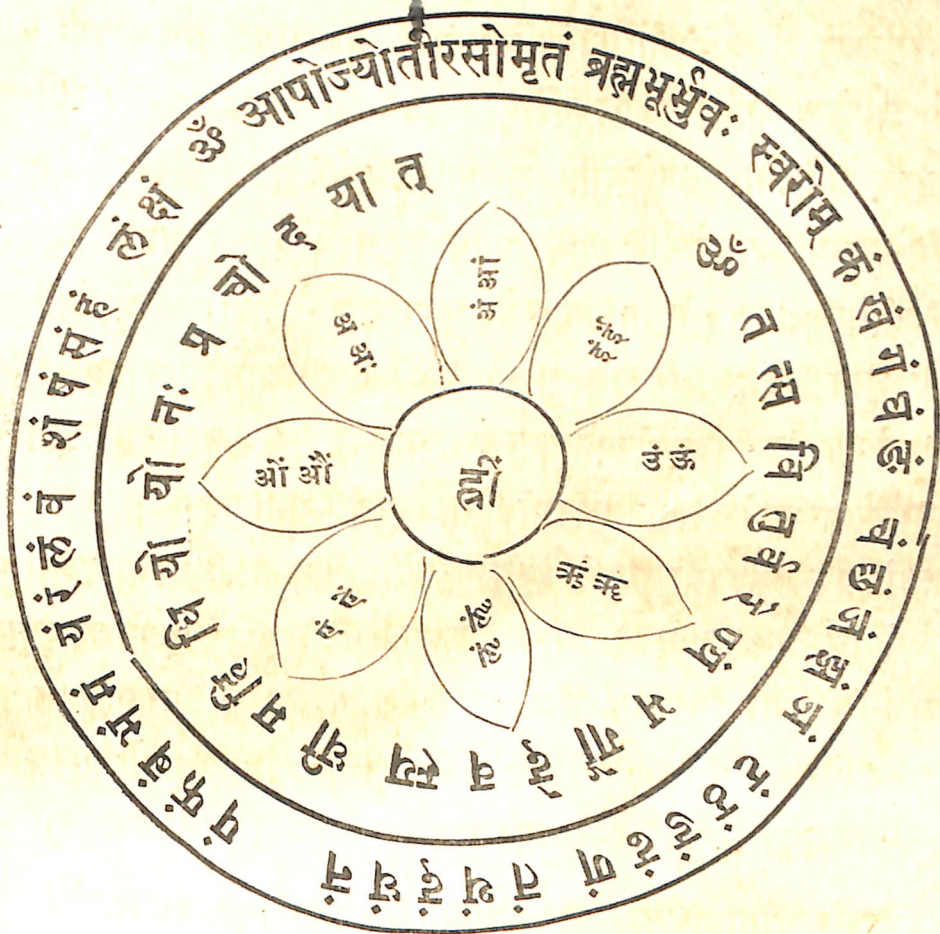 ॐ आपोज्योतीरसोमृतं ब्रह्मभूर्भुवः स्वरोम् कं खं गं घं ङं चं छं जं झं ञं टं ठं डं ढं णं तं थं दं धं नं पं फं बं भं मं यं रं लं वं शं षं सं हं लं क्षं
ॐ त त्स वि तु र्व रे ण्यं भ र्गो दे व स्य धी म हि धि यो यो नः प्र चो द या त्
अं आं
इं ईं
उं ऊं
ऋं ॠं
लृं ॡं
एं ऐं
ओं औं
अं अः